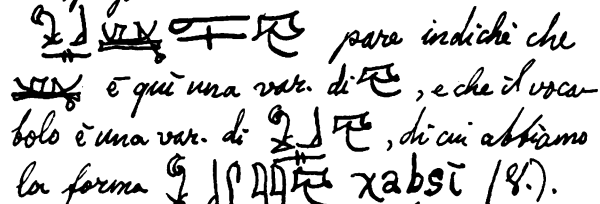 pare indichi che
è qui una var. di , e che il voca-
bolo è una var. di , di cui abbiamo
la forma χabsī (8.).